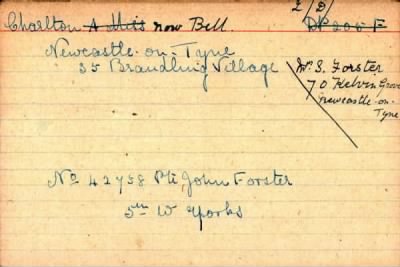 2/D/
Charlton A Miss now Bell. DP 206 F
Newcastle-on-Tyne
35 Brandling Village
Mr. S. Forster
70 Kelvin Grove
Newcastle-on-
Tyne
No 42758 Pte John Forster
5th W Yorks